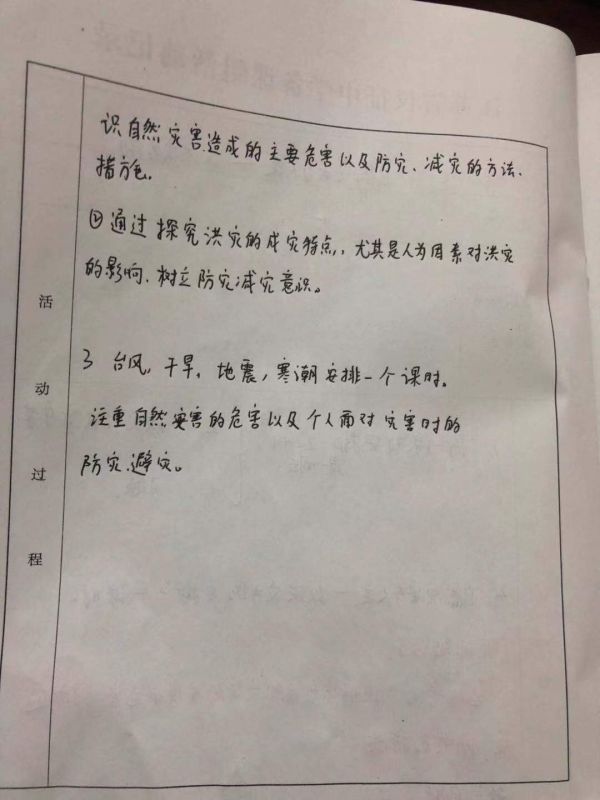 识自然灾害造成的主要危害以及防灾、减灾的方法、
措施。
②通过探究洪灾的成灾特点,尤其是人为因素对洪灾
的影响,树立防灾减灾意识。
3 台风,干旱,地震,寒潮安排一个课时。
注重自然灾害的危害以及个人面对灾害时的
防灾避灾。
活动过程